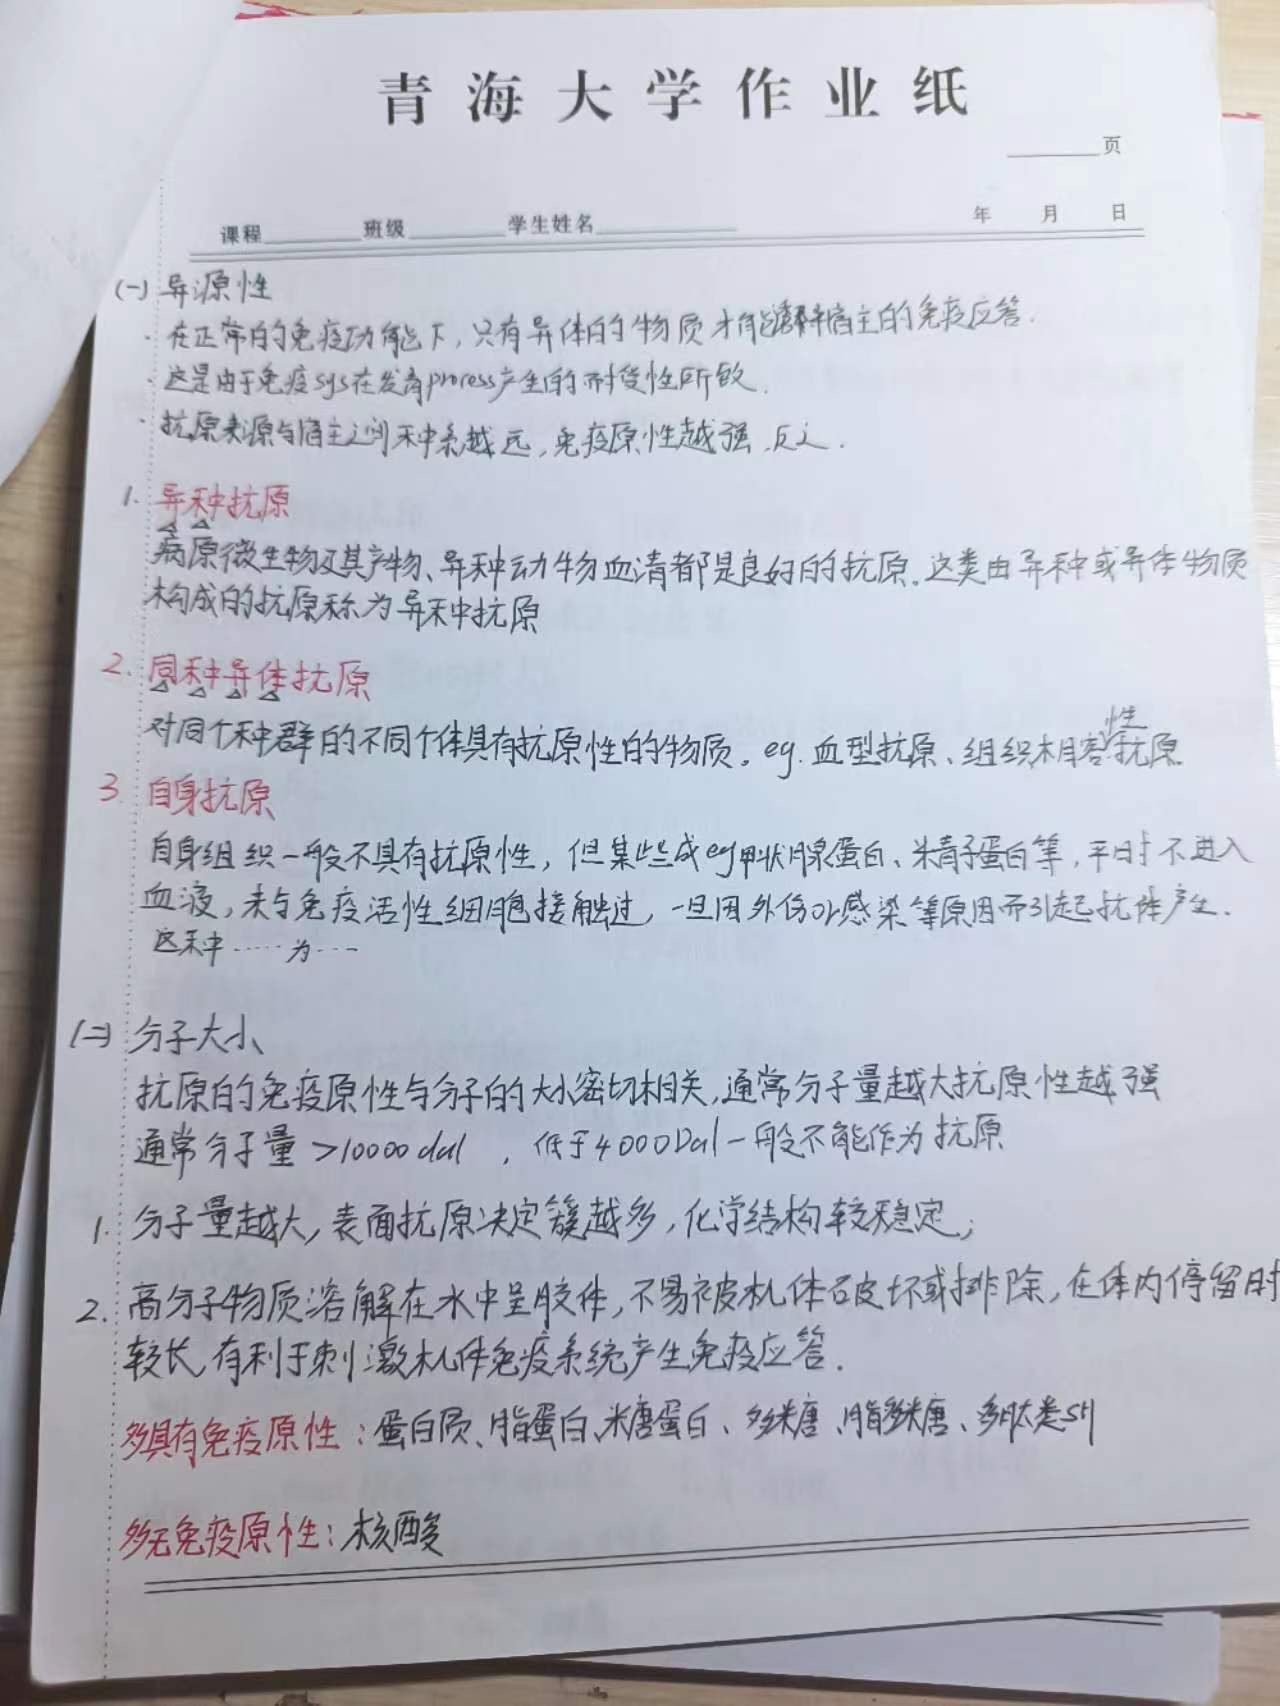 青海大学作业纸
页
课程 班级 学生姓名 年 月 日
(一) 异源性
· 在正常的免疫功能下，只有异体的物质才能诱导宿主的免疫应答.
· 这是由于免疫sys在发育process产生的耐受性所致.
· 抗原来源与宿主之间种系越远，免疫原性越强.反之.
1. 异种抗原
病原微生物及其产物、异种动物血清都是良好的抗原。这类由异种或异体物质
构成的抗原称为异种抗原
2. 同种异体抗原
对同个种群的不同个体具有抗原性的物质。eg. 血型抗原、组织相容性抗原
3. 自身抗原
自身组织一般不具有抗原性，但某些成eg甲状腺蛋白、精子蛋白等，平时不进入
血液，未与免疫活性细胞接触过，一旦因外伤or感染等原因而引起抗体产生.
这种……为…
(二) 分子大小
抗原的免疫原性与分子的大小密切相关，通常分子量越大抗原性越强
通常分子量>10000dal，低于4000Dal一般不能作为抗原
1. 分子量越大，表面抗原决定簇越多，化学结构较稳定;
2. 高分子物质溶解在水中呈胶体，不易被机体破坏或排除，在体内停留时
较长，有利于刺激机体免疫系统产生免疫应答.
多具有免疫原性：蛋白质、脂蛋白、糖蛋白、多糖、脂多糖、多肽类
多无免疫原性：核酸